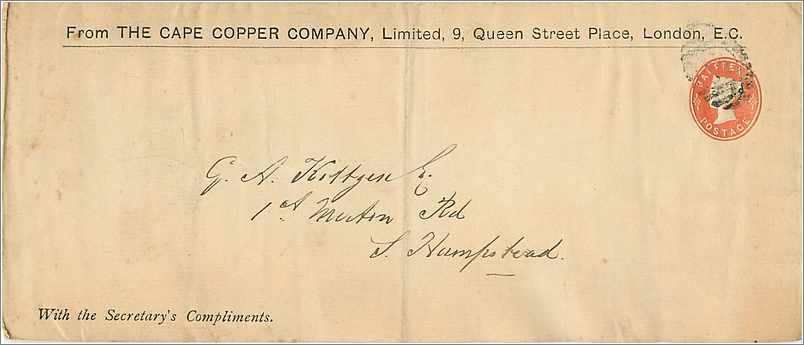 From THE CAPE COPPER COMPANY, Limited, 9, Queen Street Place, London, E.C.
HALFPENNY
POSTAGE
G. A. E.
1A Merton Rd
S. Hampstead.
With the Secretary's Compliments.